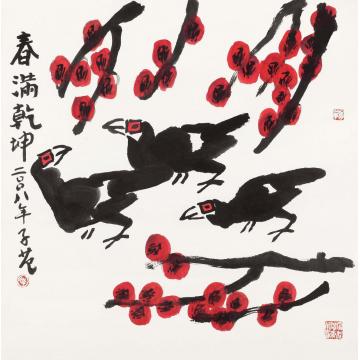 春满乾坤
二〇〇八年子范